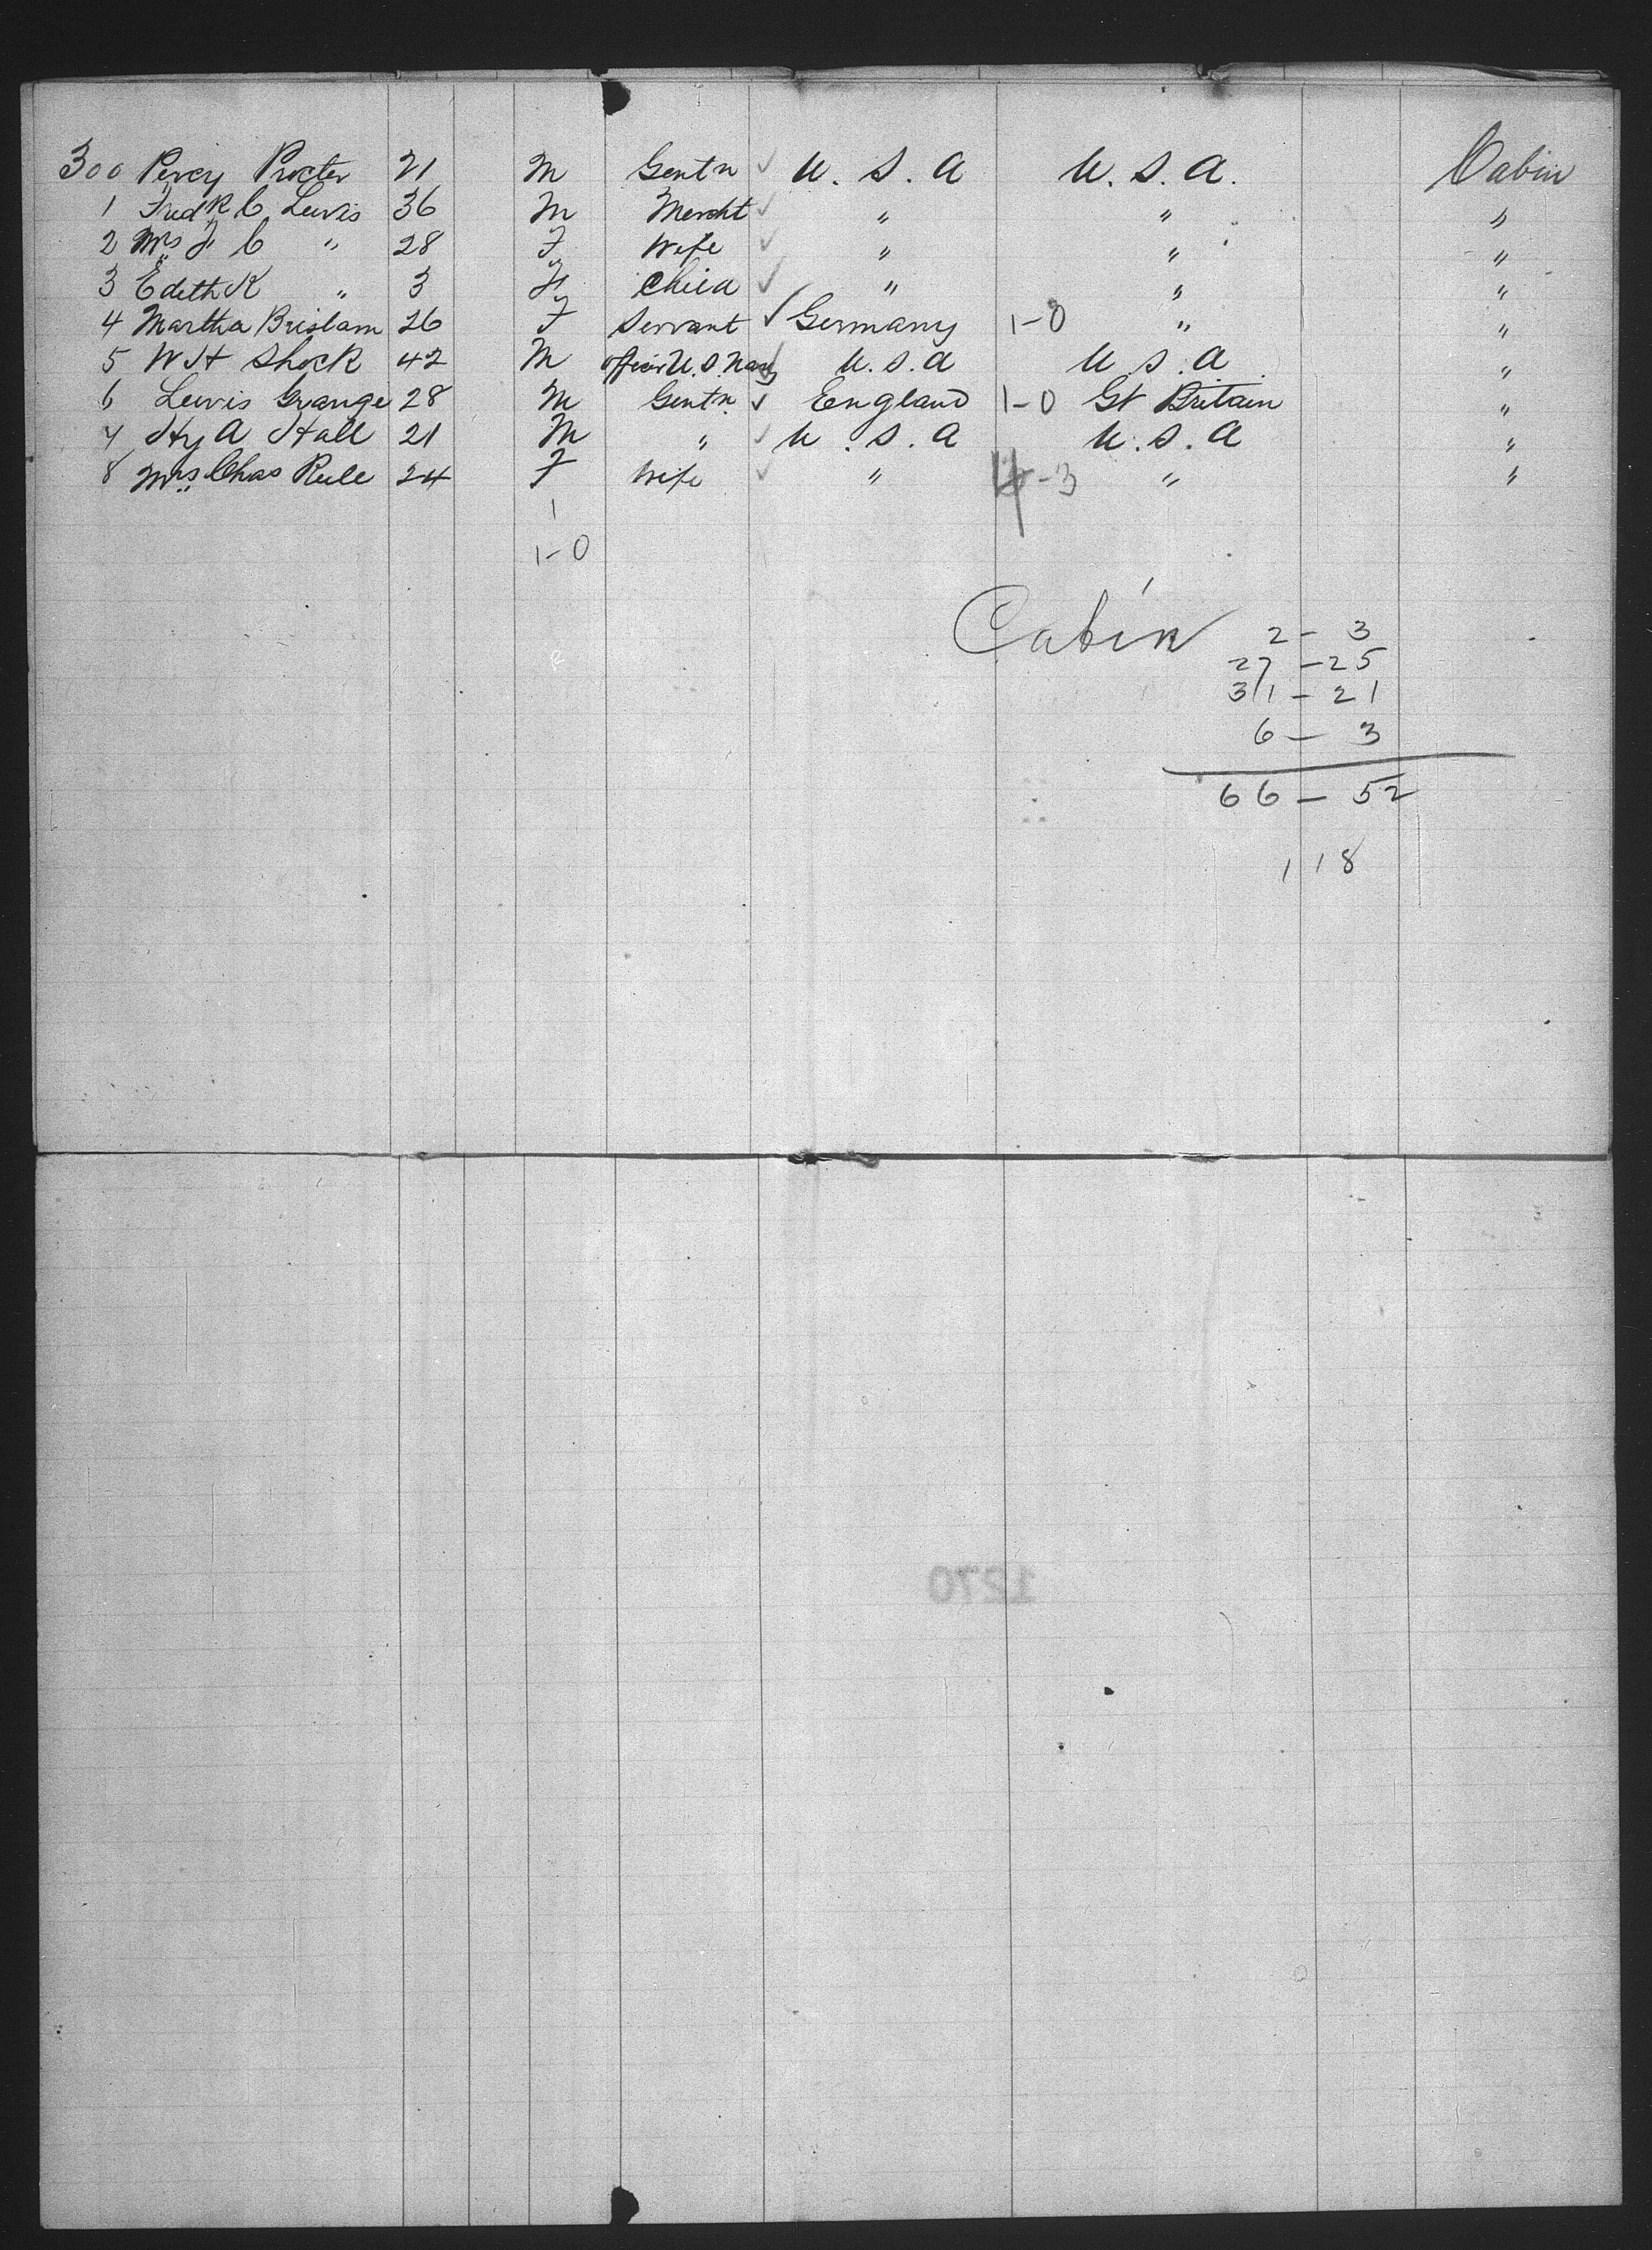 300 Percy Procter 21 M Gentn ✓ U. S. A U. S. A. Cabin
1 Fredk C Lewis 36 M Mercht ✓ " " "
2 Mrs F C " 28 F Wife ✓ " " "
3 Edith K " 3 F Child ✓ " " "
4 Martha 26 F Servant ✓ Germany 1-0 " "
5 W H Shock 42 M Officer U. S. Navy U. S. A U. S. A "
6 Lewis Grange 28 M Gentn ✓ England 1-0 Gt Britain "
7 Hy A Hall 21 M " ✓ U. S. A U. S. A "
8 Mrs Chas Rule 24 F Wife ✓ " 4-3 " "
1
1-0
Cabin 2 - 3
27 - 25
31 - 21
6 - 3
66 - 52
118
1270